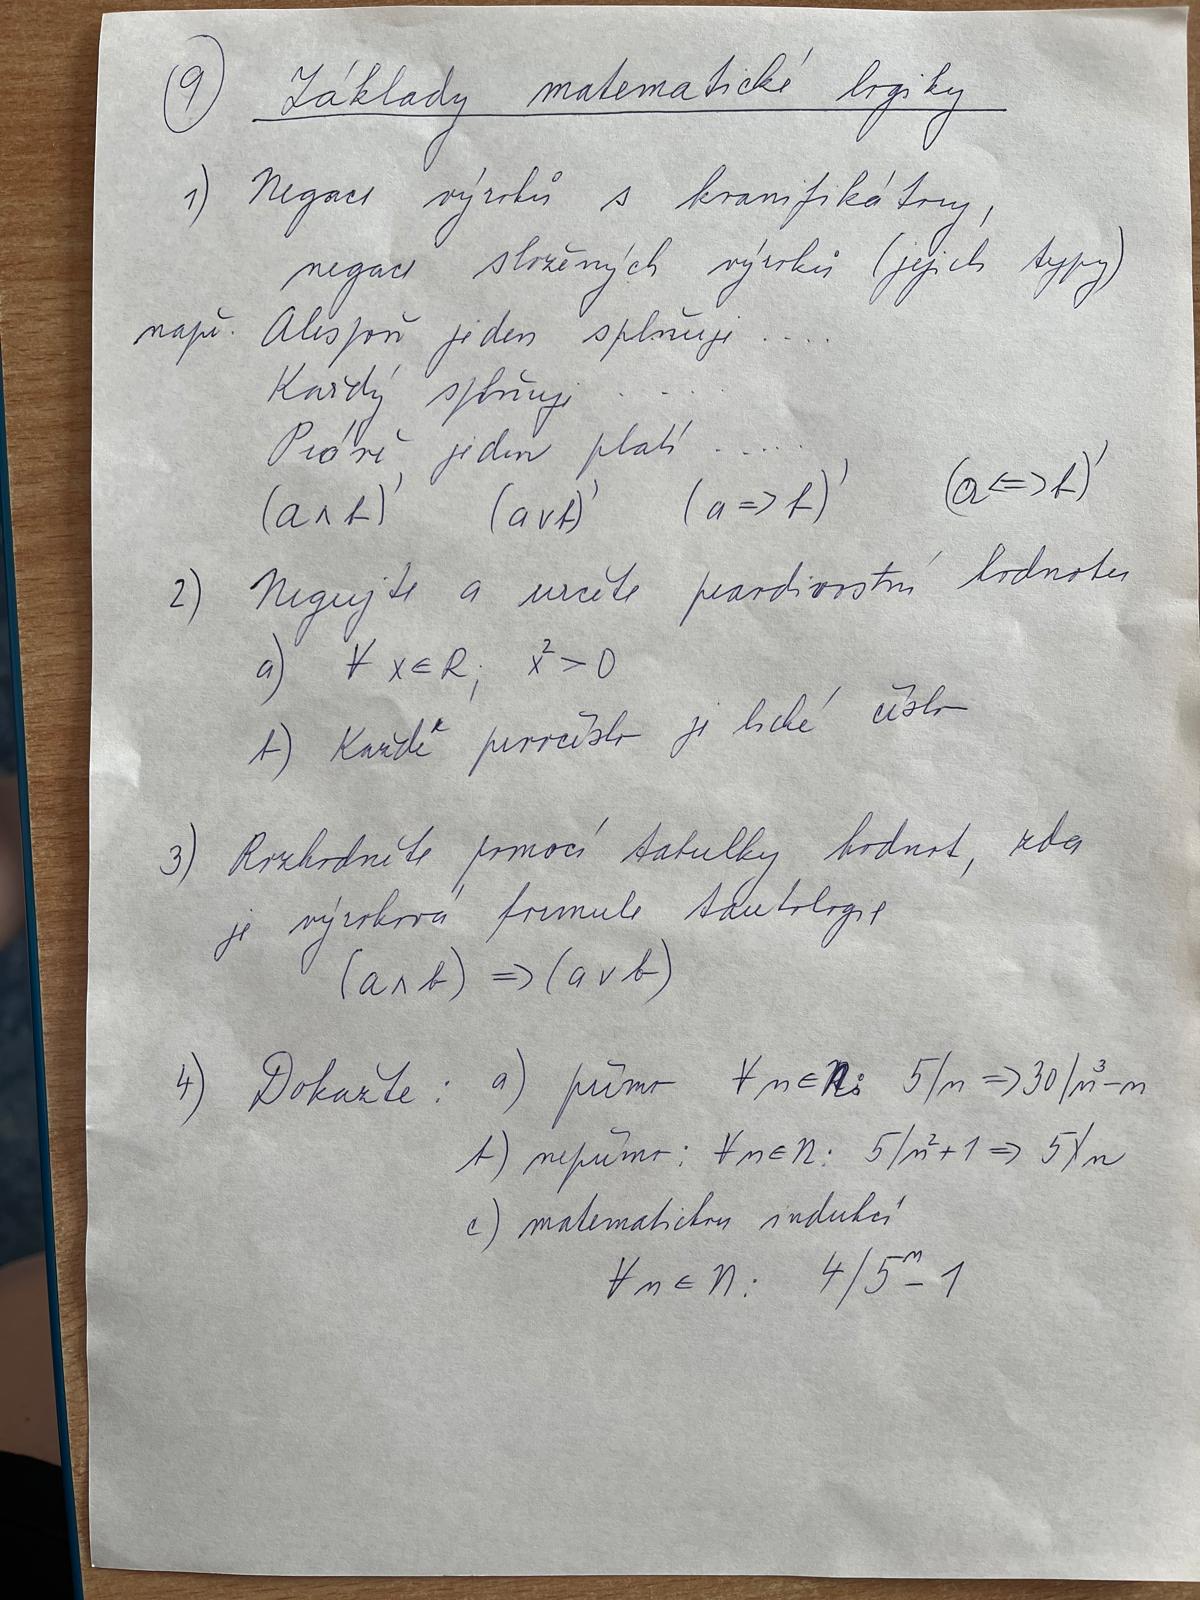 9 Základy matematické logiky
1) Negace výroků s kvantifikátory,
negace složených výroků (jejich typy)
např. Alespoň jeden splňuje ....
Každý splňuje ....
Právě jeden platí ....
(a ∧ b)' (a ∨ b)' (a => b)' (a <=> b)'
2) Negujte a určete pravdivostní hodnotu
a) ∀ x ∈ R; x² > 0
b) Každé prvočíslo je liché číslo
3) Rozhodněte pomocí tabulky hodnot, zda
je výroková formule tautologie
(a ∧ b) => (a ∨ b)
4) Dokažte: a) přímo ∀ n ∈ N: 5/n => 30/n³-n
b) nepřímo: ∀ n ∈ N: 5/n²+1 => 5∤n
c) matematickou indukcí
∀ n ∈ N: 4/5ⁿ - 1